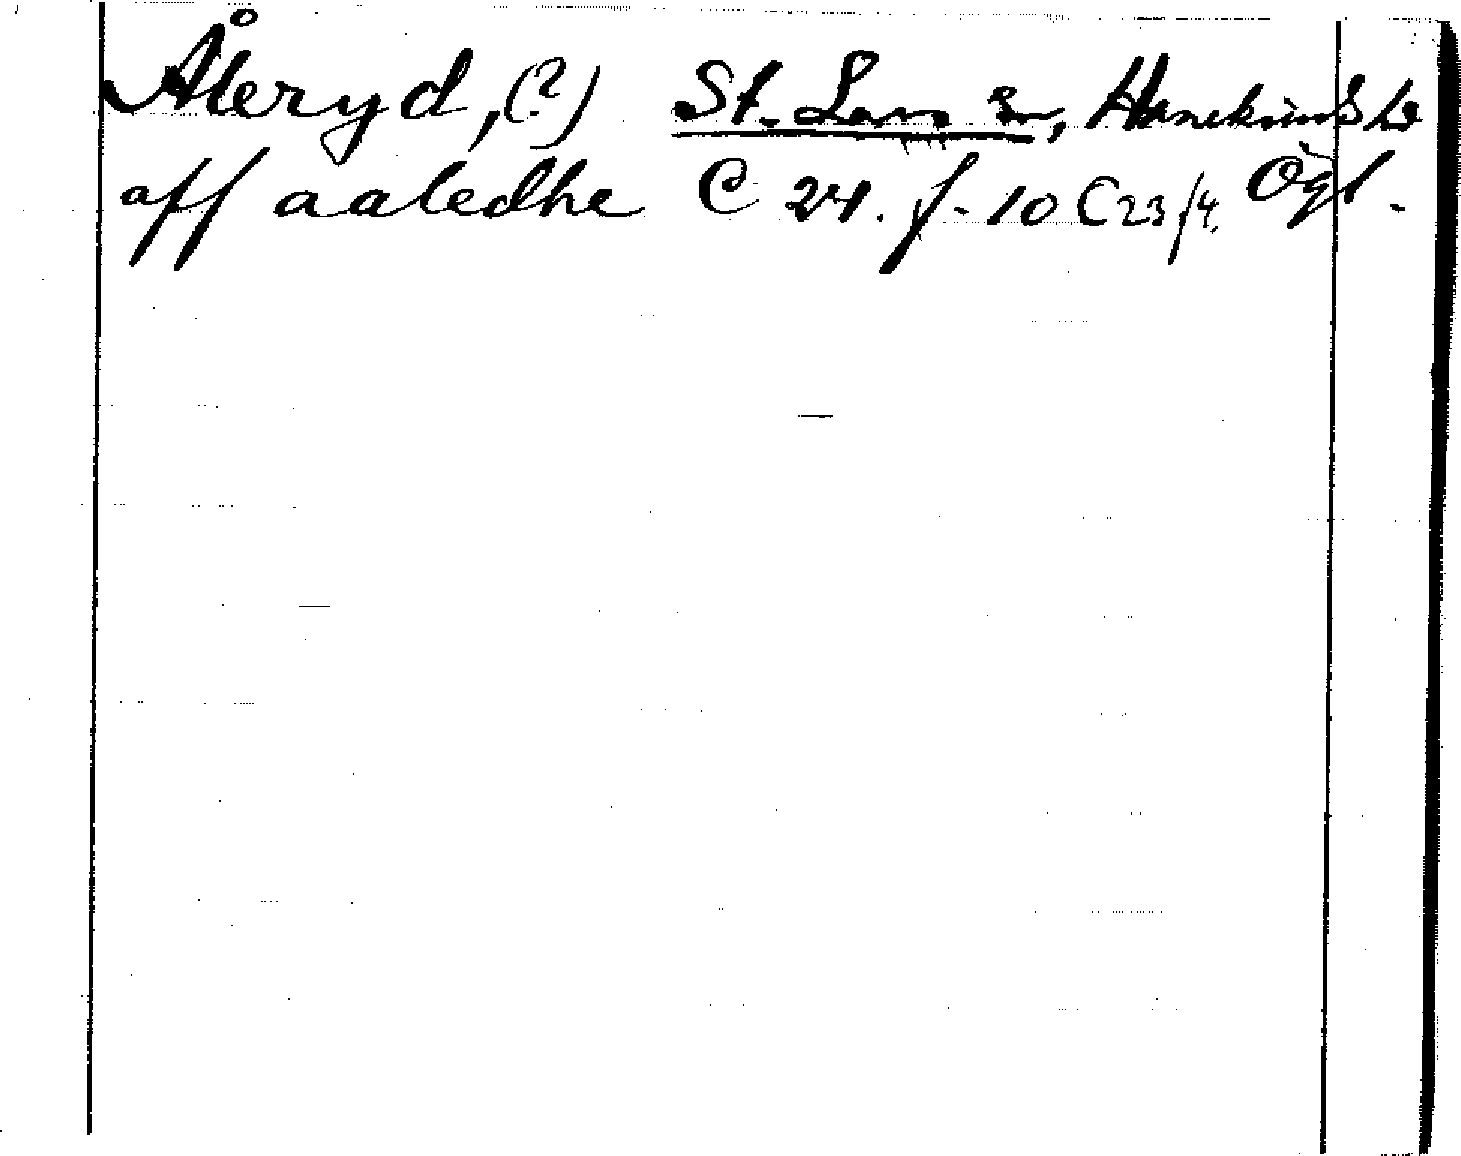 Åleryd, (?) St. Lars sn, Hanekinds hd
aff aaledhe C 24. f. 10 C 23 f 4. Ögl.